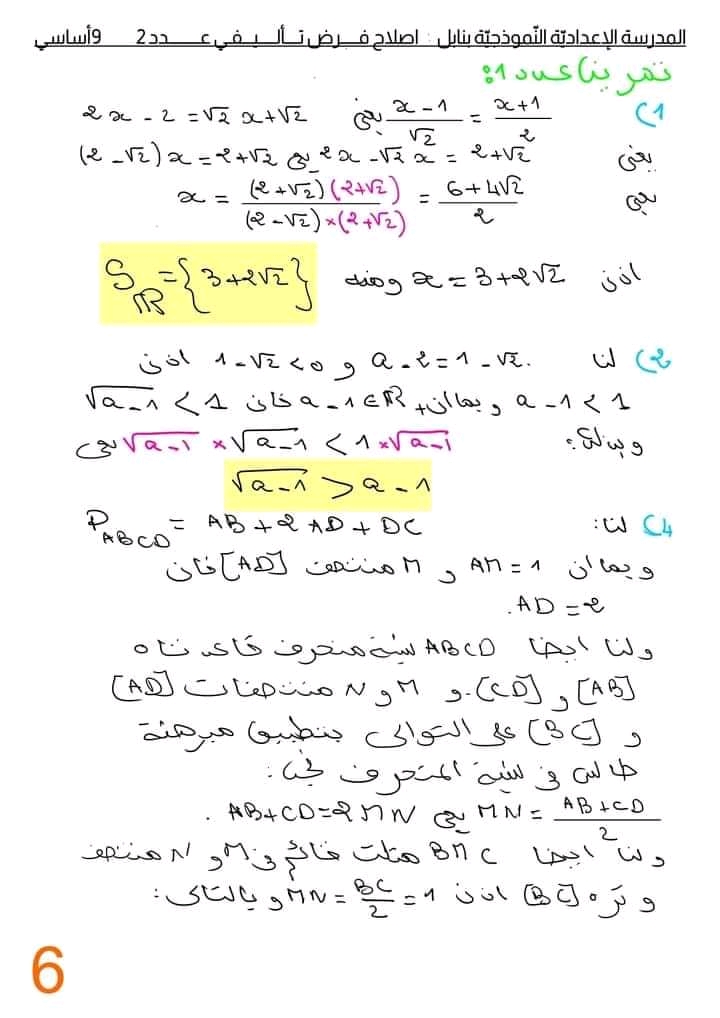 المدرسة الإعداديّة النّموذجيّة بنابل : اصلاح فـرض تـأليـفي عـدد 2 9أساسي
تمرين عدد 1:
1) (x-1)/√2 = (x+1)/2 يعني 2x - 2 = √2 x + √2
يعني 2x - √2 x = 2+√2 يعني (2 - √2)x = 2+√2
يعني x = (2+√2)(2+√2)/(2-√2)×(2+√2) = (6+4√2)/2
اذن x = 3+2√2 ومنه S_ℝ = {3+2√2}
2) لنا a-2 = 1-√2. و 1-√2 < 0 اذن
a-1 < 1 وبما ان a-1 ∈ ℝ+ فان √(a-1) < 1
وبذلك: √(a-1) × √(a-1) < 1 × √(a-1) يعني
√(a-1) > a-1
4) لنا: P_ABCD = AB + 2AD + DC
وبما ان AM = 1 و M منتصف [AD] فان
AD = 2.
ولنا ايضا ABCD شبه منحرف قاعدتاه
[AB] و [CD]. و M و N منتصفات [AD]
و [BC] على التوالي بتطبيق مبرهنة
طالس في شبه المنحرف نجد:
MN = (AB+CD)/2 يعني AB+CD = 2MN .
ولنا ايضا BMC مثلث قائم في M و N منتصف
وتره [BC] اذن MN = BC/2 = 1 وبالتالي:
6